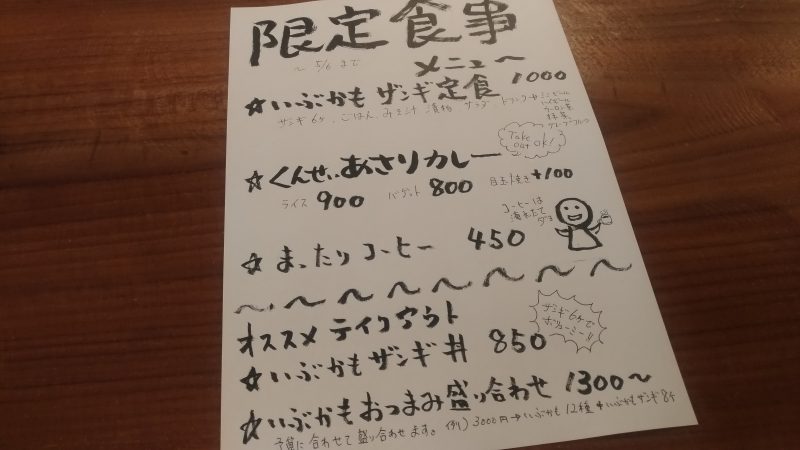 限定食事
～ 5/6 まで
メニュー
☆いぶかもザンギ定食 1000
ザンギ6ヶ、ごはん、みそ汁、漬物、サラダ、ドリンク
ウーロン茶
Take out ok!
☆くんせいあさりカレー
ライス 900 バゲット 800 目玉焼き +100
☆まったりコーヒー 450
コーヒーは
淹れたて
～～～～～～～～
オススメ テイクアウト
ザンギ6ヶで
ボリューミー!!
☆いぶかもザンギ丼 850
☆いぶかもおつまみ盛り合わせ 1300～
予算に合わせて盛り合わせます。(例) 3000円→いぶかも12種+いぶかもザンギ8ヶ